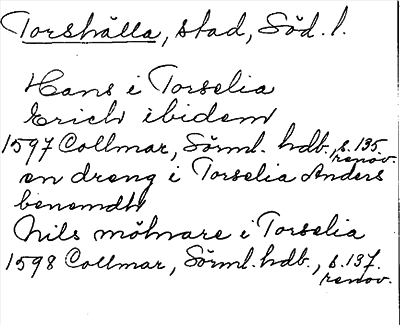 Torshälla, stad, Söd. l.
Hans i Torselia
Erich ibidem
1597 Collmar, Sörml. hdb. s. 135.
renov.
en dreng i Torselia Anders
benemdh
Nils möhnare i Torselia
1598 Collmar, Sörml. hdb., s. 137.
renov.